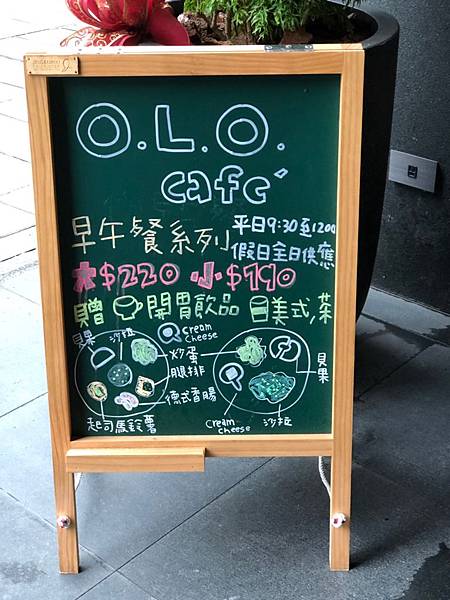 O.L.O.
cafe'
早午餐系列
平日9:30至1200
假日全日供應
大$220 小$190
贈 開胃飲品 美式,茶
貝果 沙拉 Cream cheese
炒蛋
腿排
德式香腸
起司馬鈴薯
貝果
Cream cheese 沙拉